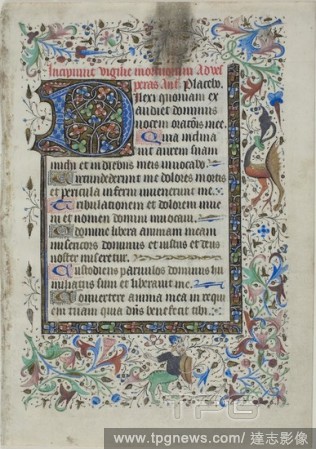 Incipiunt vigilie mortuorum ad ves
peras. Ant. Placebo.
Dilexi quoniam ex
audiet dominus
vocem orationis mee.
Quia inclina
vit aurem suam
michi et in diebus meis invocabo.
Circundederunt me dolores mortis
et pericula inferni invenerunt me.
Tribulationem et dolorem inve
ni et nomen domini invocavi
O domine libera animam meam
misericors dominus et iustus et deus
noster miseretur.
Custodiens parvulos dominus hu
miliatus sum et liberavit me.
Convertere anima mea in requi
em tuam quia dns benefecit tibi.
TPG
www.tpgnews.com / 達志影像